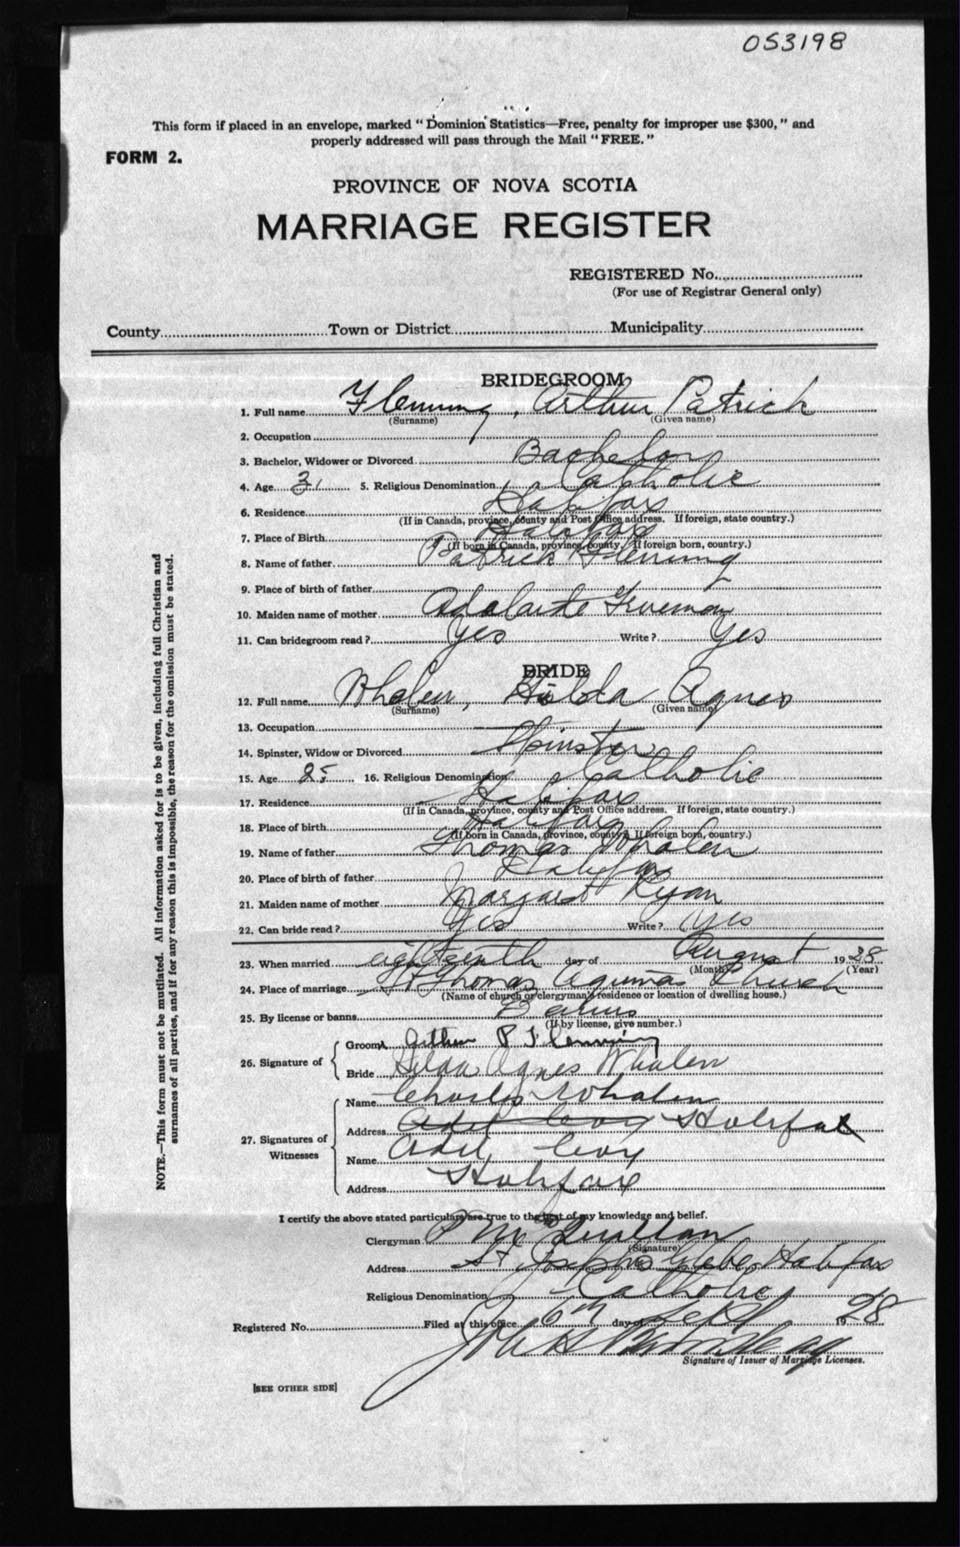 053198
This form if placed in an envelope, marked "Dominion Statistics—Free, penalty for improper use $300," and
properly addressed will pass through the Mail "FREE."
FORM 2.
PROVINCE OF NOVA SCOTIA
MARRIAGE REGISTER
REGISTERED No.
(For use of Registrar General only)
County Town or District Municipality
BRIDEGROOM
1. Full name Flemming, Arthur Patrick
(Surname) (Given name)
2. Occupation
3. Bachelor, Widower or Divorced Bachelor
4. Age 31 5. Religious Denomination Catholic
6. Residence Halifax
(If in Canada, province, county and Post Office address. If foreign, state country.)
7. Place of Birth Halifax
(If born in Canada, province, county, If foreign born, country.)
8. Name of father Patrick Flemming
9. Place of birth of father
10. Maiden name of mother Adelaide
11. Can bridegroom read? Yes Write? Yes
BRIDE
12. Full name Whalen, Hilda Agnes
(Surname) (Given name)
13. Occupation
14. Spinster, Widow or Divorced Spinster
15. Age 25 16. Religious Denomination Catholic
17. Residence Halifax
(If in Canada, province, county and Post Office address. If foreign, state country.)
18. Place of birth Halifax
(If born in Canada, province, county, If foreign born, country.)
19. Name of father Thomas Whalen
20. Place of birth of father Halifax
21. Maiden name of mother Margaret Ryan
22. Can bride read? Yes Write? Yes
23. When married eighteenth day of August 1928
(Month) (Year)
24. Place of marriage St Thomas Aquinas Church
(Name of church or clergyman's residence or location of dwelling house.)
25. By license or banns Banns
(If by license, give number.)
26. Signature of Groom Arthur P Flemming
Bride Hilda Agnes Whalen
27. Signatures of Witnesses
Name Charles Whalen
Address Halifax
Name Coy
Address Halifax
I certify the above stated particulars are true to the best of my knowledge and belief.
Clergyman
(Signature)
Address St Joseph's Glebe, Halifax
Religious Denomination Catholic
Registered No. Filed at this office 6th day of Sept 1928
Signature of Issuer of Marriage Licenses.
[SEE OTHER SIDE]
NOTE.—This form must not be mutilated. All information asked for is to be given, including full Christian and
surnames of all parties, and if for any reason this is impossible, the reason for the omission must be stated.